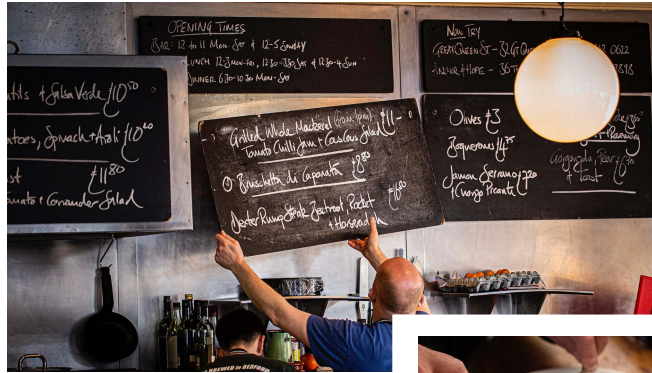 OPENING TIMES
BAR: 12 to 11 Mon-Sat & 12-5 Sunday
LUNCH 12-3 Mon-Fri, 12.30-3.30 Sat & 12.30-4 Sun
DINNER 6.30-10.30 Mon-Sat
Now TRY
GREAT QUEEN ST - 32 GT QU
0622
& Salsa Verde £10
Spinach + Aioli £10
£11 80
+ Coriander Salad
Grilled Whole Mackerel
£11-
Tomato Chilli Jam + Couscous Salad
Bruschetta di Caponata £8 80
Dexter Rump Steak Beetroot, Rocket
+ Horseradish
£16 80
Olives £3
Boquerones £4.75
Jamon Serrano £7 20
+ Chorizo Picante
Gorgonzola, Pear
+ Toast
+ Rosemary
BREWED IN BEDFORD